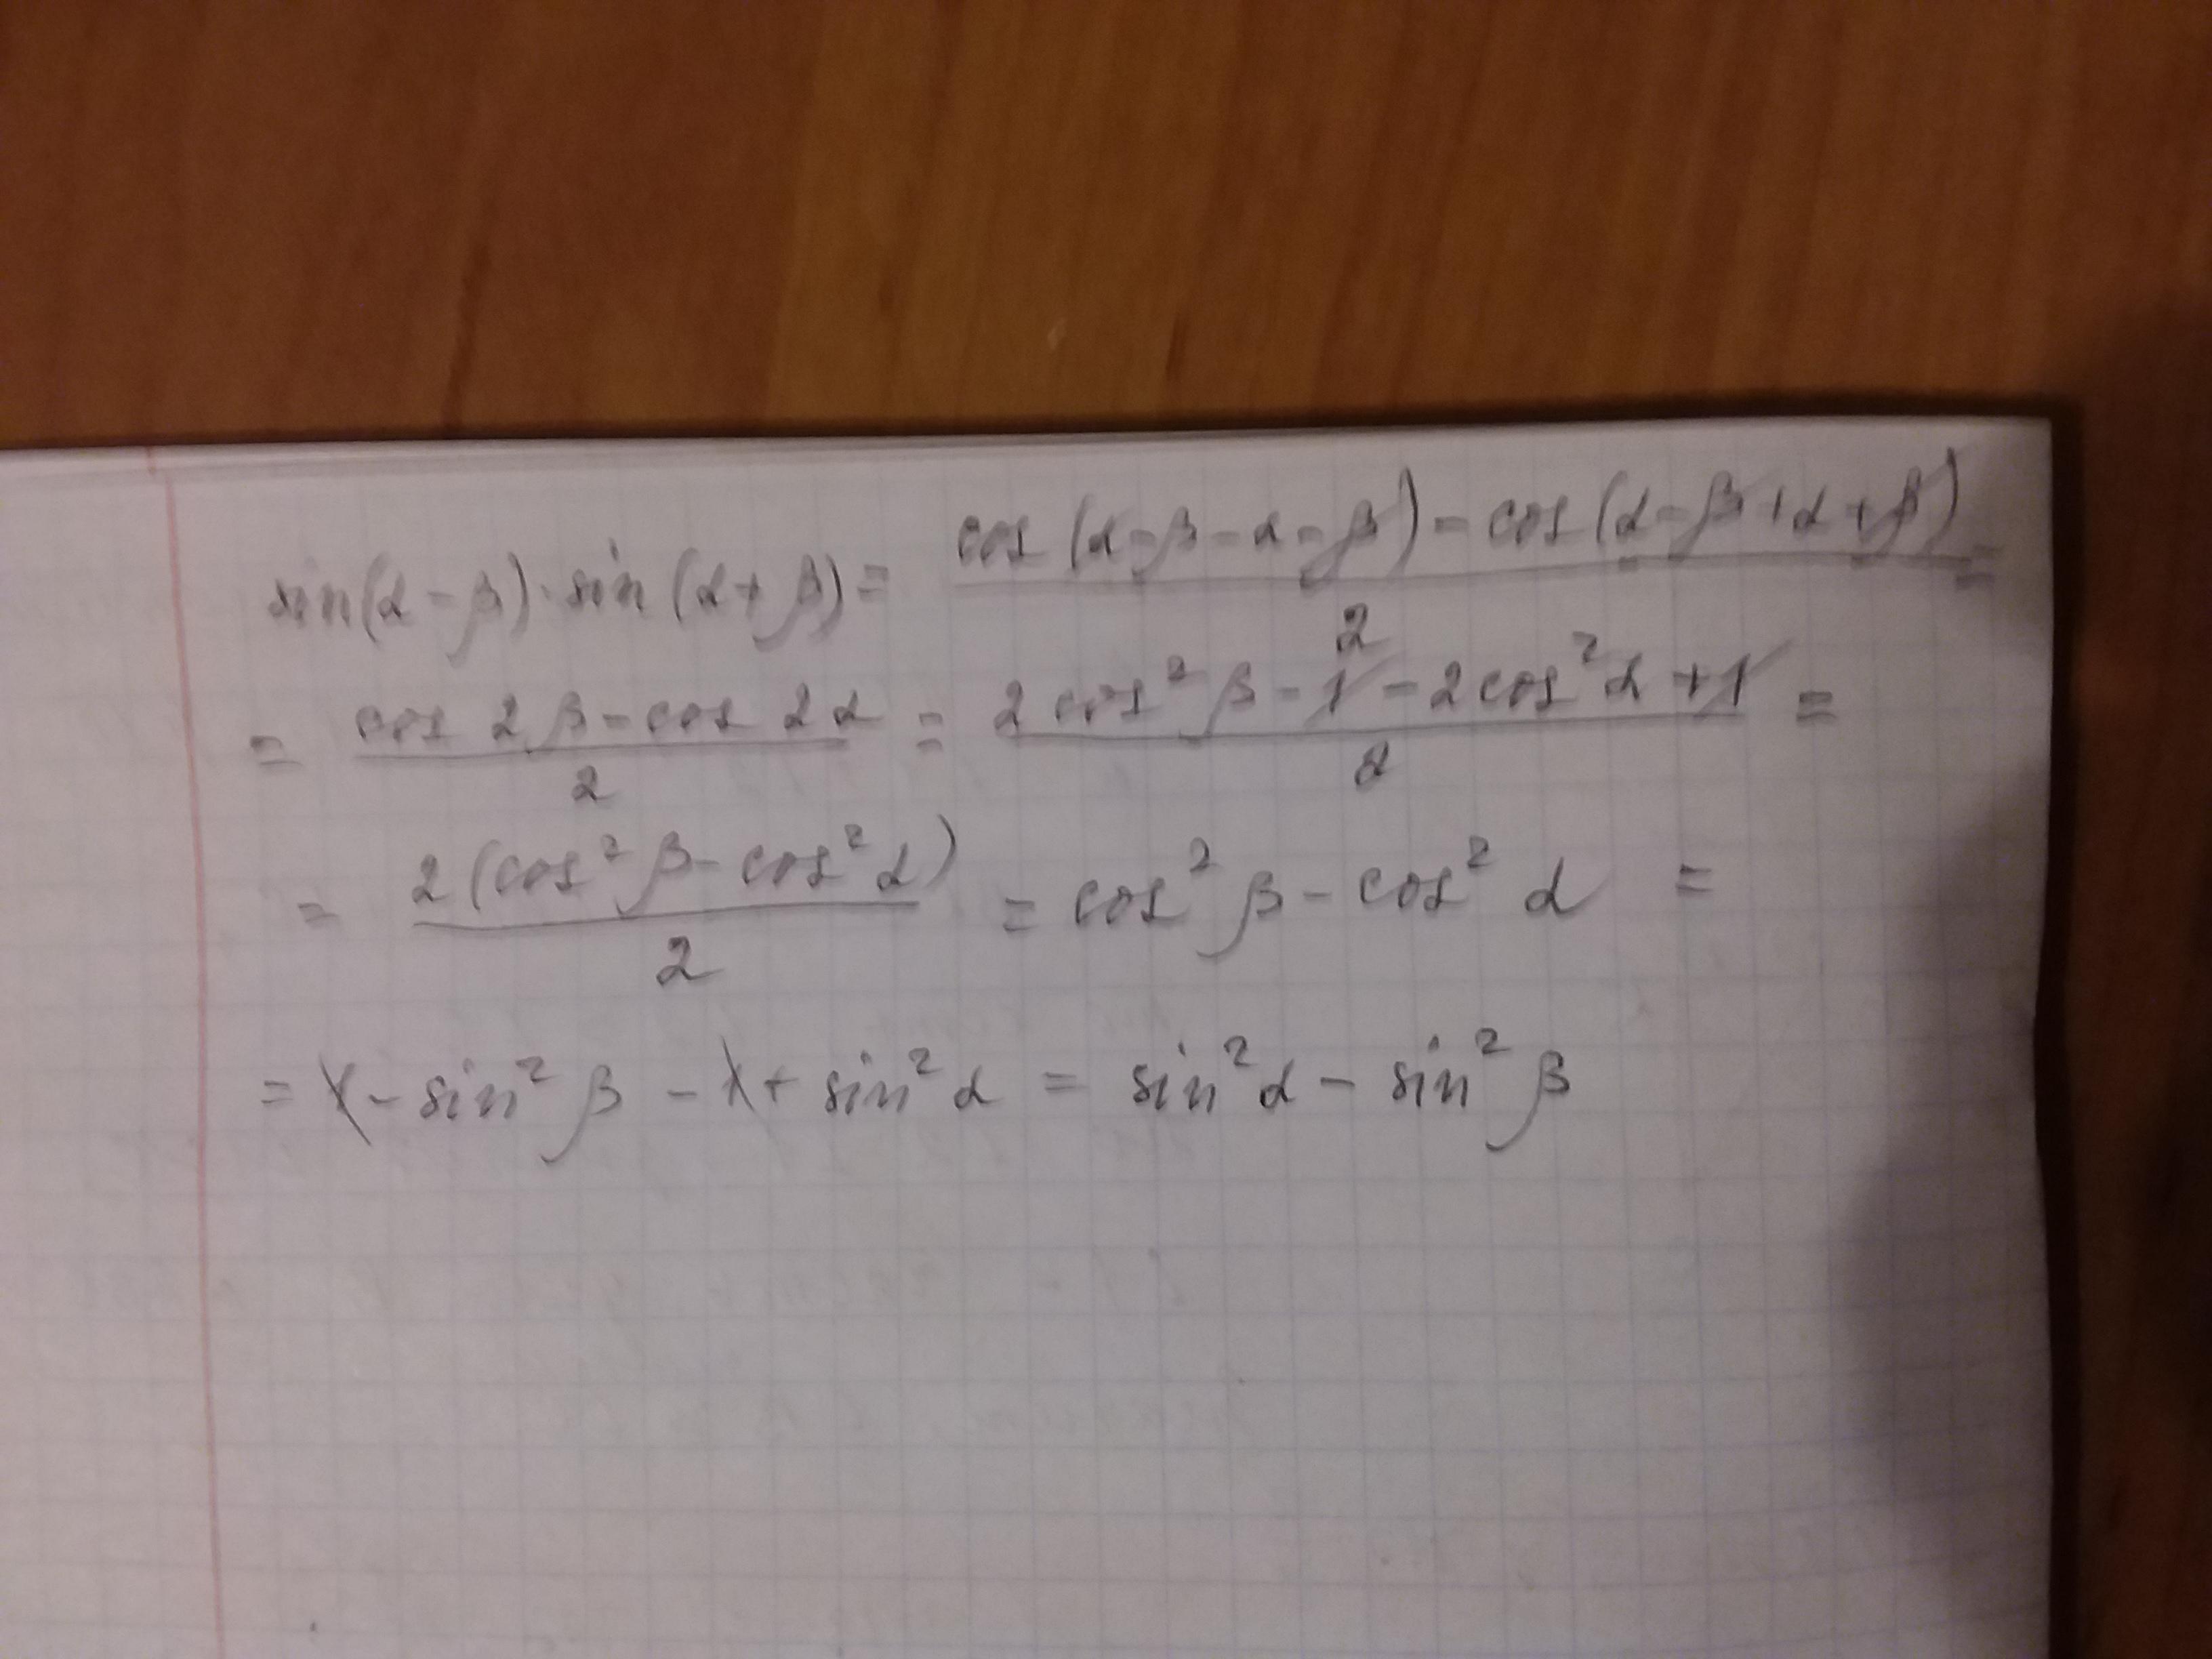 sin(α-β)·sin(α+β)= cos(α-β-α-β)-cos(α-β+α+β)/2 =
= cos 2β-cos 2α/2 = 2cos²β-1-2cos²α+1/2 =
= 2(cos²β-cos²α)/2 = cos²β-cos²α =
= 1-sin²β-1+sin²α = sin²α-sin²β